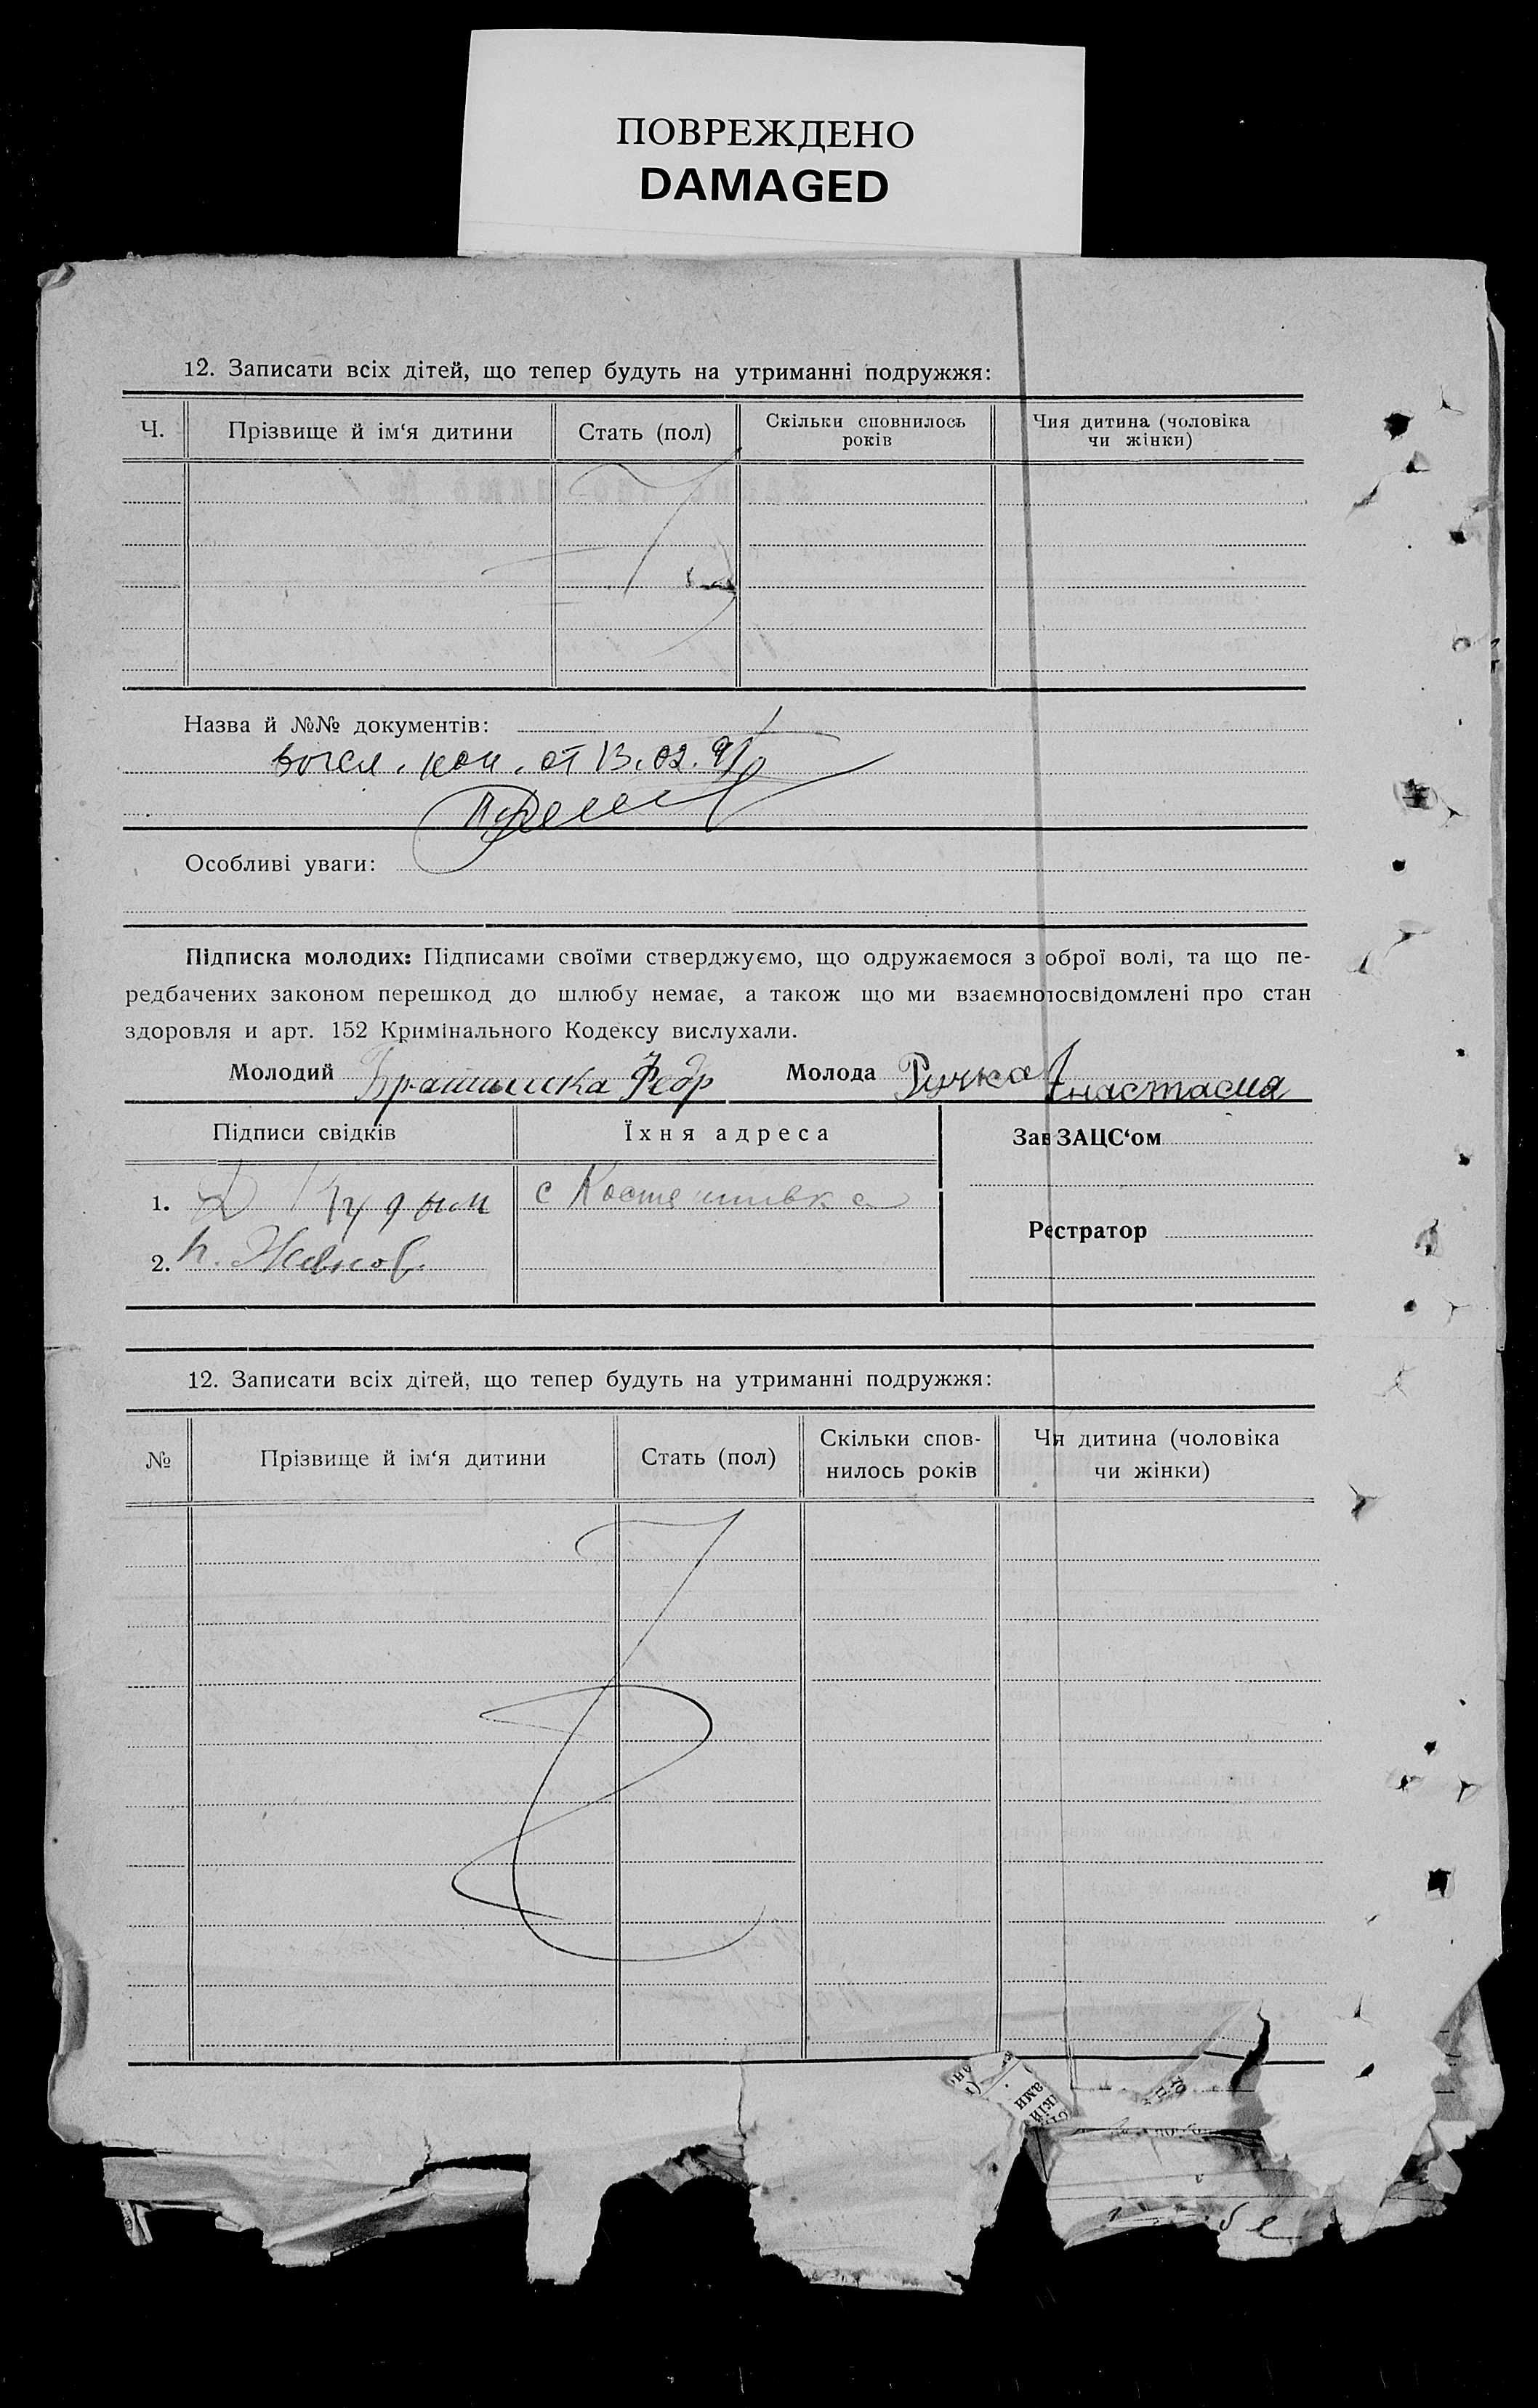 ПОВРЕЖДЕНО
DAMAGED
12. Записати всіх дітей, що тепер будуть на утриманні подружжя:
Ч. Прізвище й ім‘я дитини Стать (пол) Скільки сповнилось Чия дитина (чоловіка
років чи жінки)
Назва й №№ документів:
от 13.02.91
Особливі уваги:
Підписка молодих: Підписами своїми стверджуємо, що одружаємося з оброї волі, та що пе-
редбачених законом перешкод до шлюбу немає, а також що ми взаємно освідомлені про стан
здоровля и арт. 152 Кримінального Кодексу вислухали.
Молодий Федр Молода Ручка Анастасия
Підписи свідків Їхня адреса Зав ЗАЦС‘ом
1. с
Реєстратор
2.
12. Записати всіх дітей, що тепер будуть на утриманні подружжя:
№ Прізвище й ім‘я дитини Стать (пол) Скільки спов- Чия дитина (чоловіка
нилось років чи жінки)
ами
кій